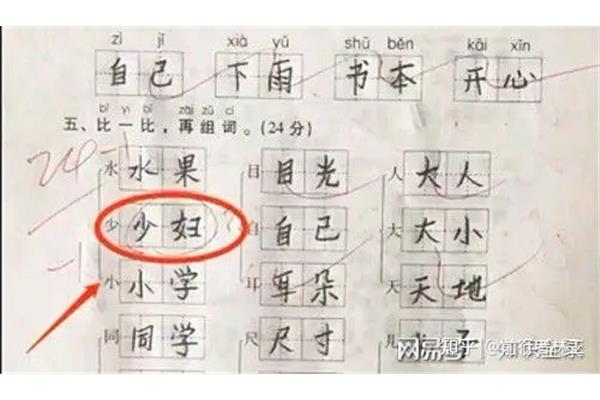 zì jǐ xià yǔ shū běn kāi xīn
自己 下雨 书本 开心
bǐ yi bǐ zài zǔ cí
五、比一比，再组词。(24分)
24
水 水果 目 目光 人 大人
少 少妇 自 自己 大 大小
-1
小 小学 耳 耳朵 天 天地
同 同学 尺 尺寸 儿 儿子
知乎